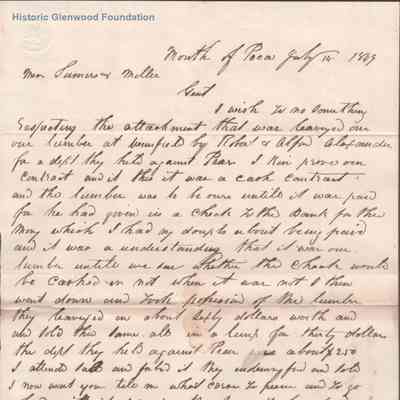 Historic Glenwood Foundation
Mouth of Poca July 12 1869
Messrs Sumers & Miller
Gent
I wish to no something
Respecting the attachment that was leaveyed on
our lumber at by Robert & Alexander
for a dept they held against Pear I Kin prove our
contract and it this it was a cash contract
and the lumber was to be ours untill it was paid
for he had given us a Check to the Bank for the
Mony which I had my doupts about being paid
and it was a understanding that it was our
lumber untill we saw whether the Check would
be cashed or not when it was not I then
went down and took possesion of the lumber
they leaveyed on about Sixty dollars worth and
and sold the same all in a lump for thirty dollars
the dept they held against Pear is about $250
I attended sale and forbid it they and sold
I now want you tell me what corse to persue and to go